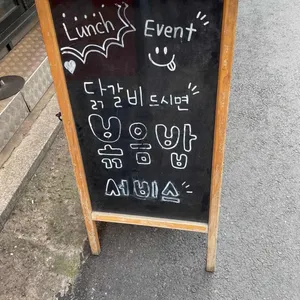 Lunch Event
닭갈비 드시면
볶음밥
서비스